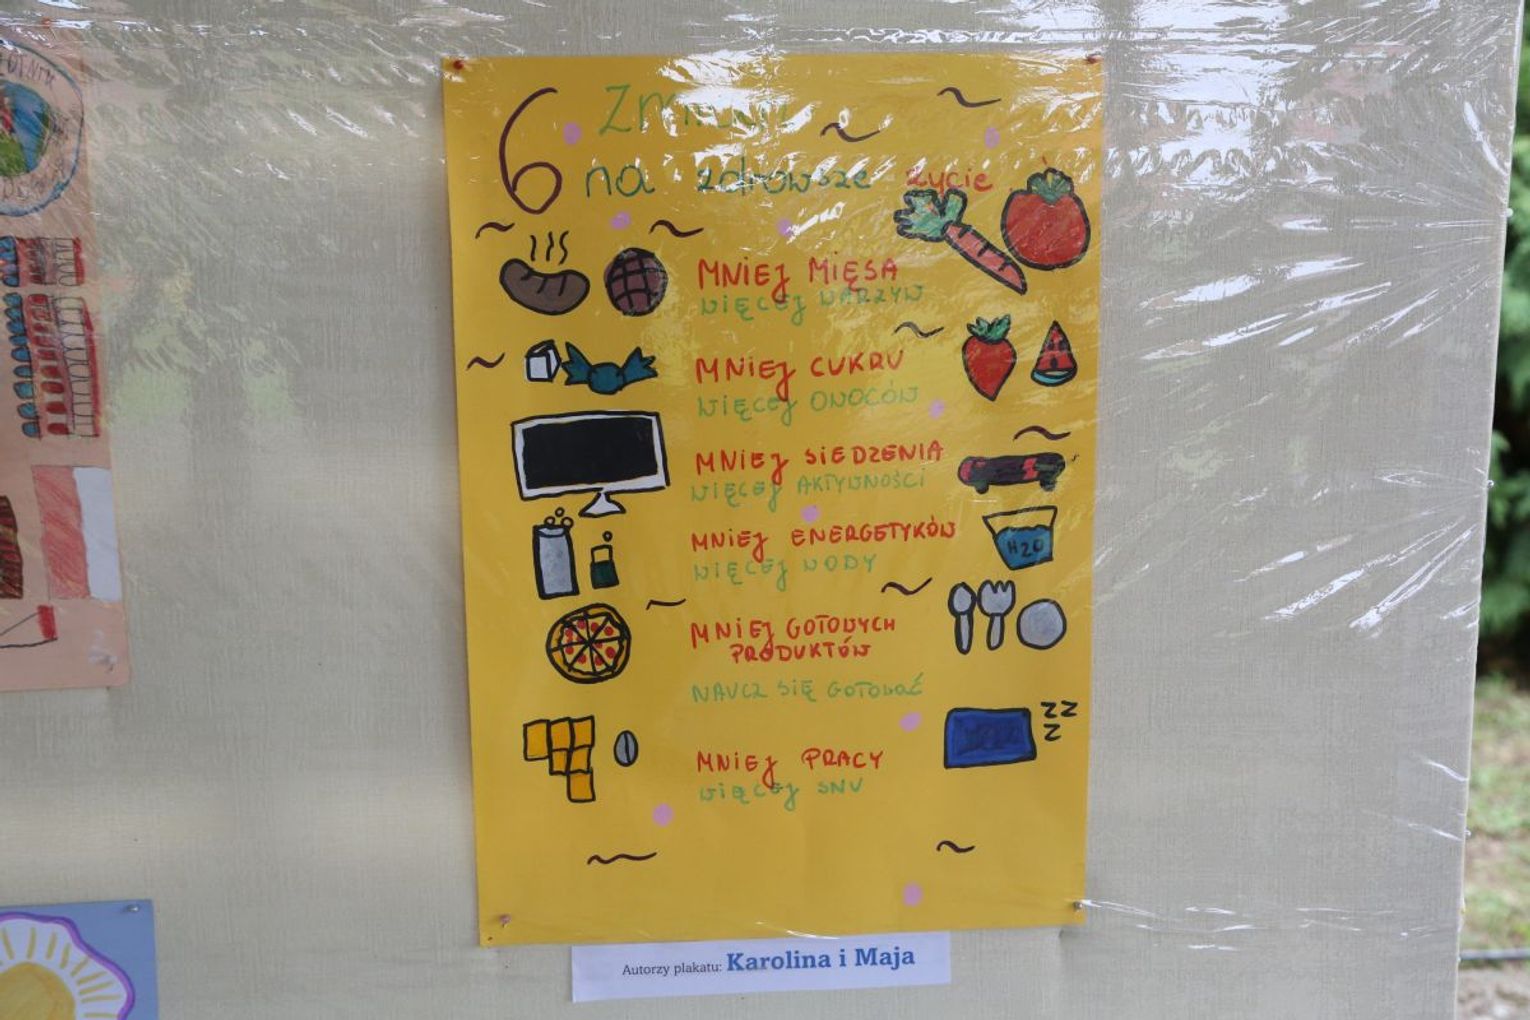 6 Zmian
na zdrowsze życie
MNIEJ MIĘSA
WIĘCEJ WARZYW
MNIEJ CUKRU
WIĘCEJ OWOCÓW
MNIEJ SIEDZENIA
WIĘCEJ AKTYWNOŚCI
MNIEJ ENERGETYKÓW
WIĘCEJ WODY
H2O
MNIEJ GOTOWYCH
PRODUKTÓW
NAUCZ SIĘ GOTOWAĆ
ZZ
Z
MNIEJ PRACY
WIĘCEJ SNU
Autorzy plakatu: Karolina i Maja